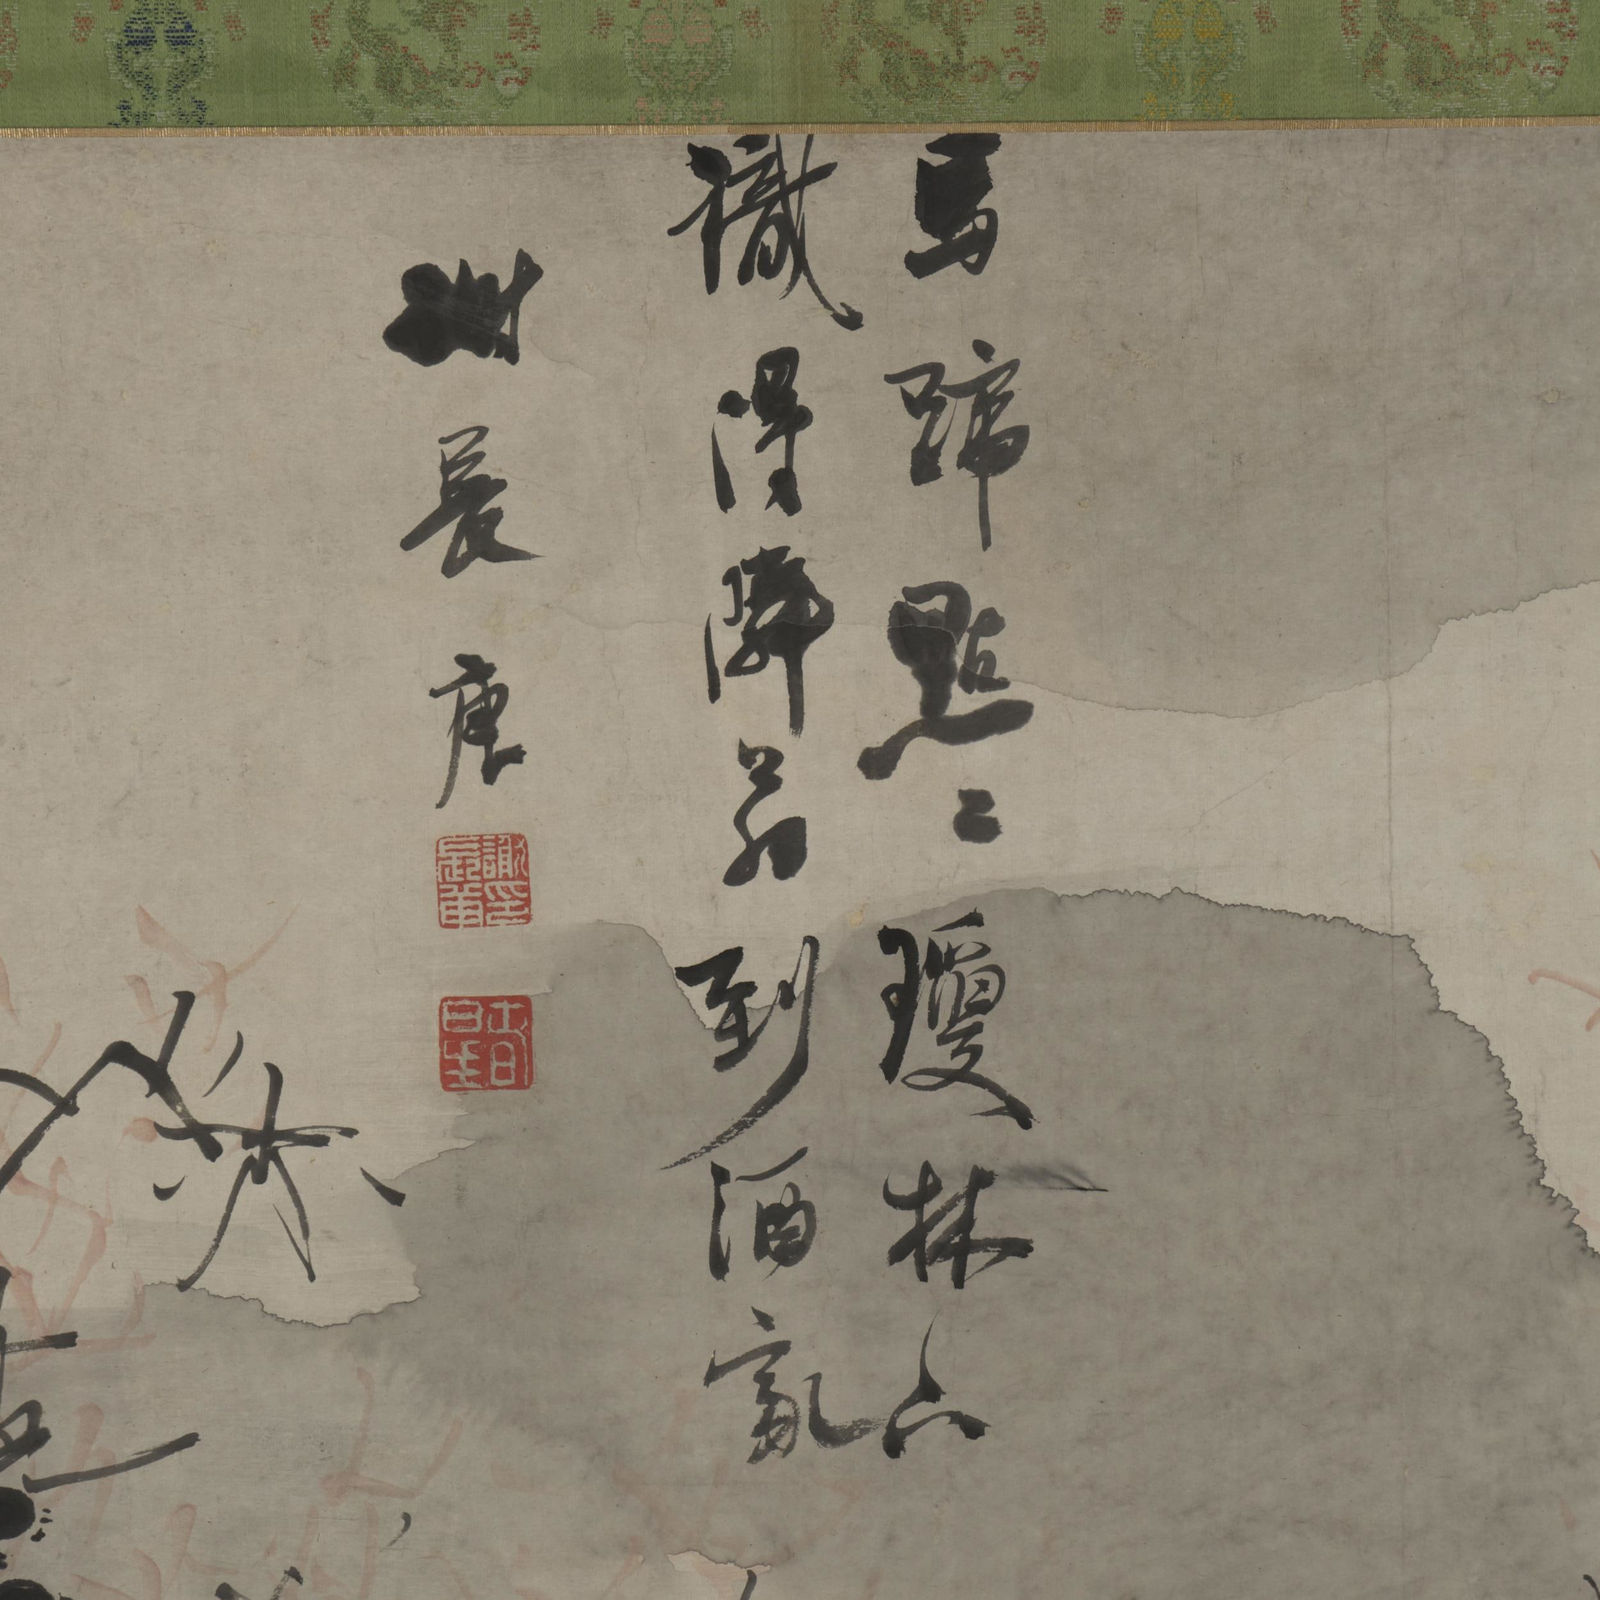 馬蹄點〻瓊林
識得隣翁到酒家
謝長庚
謝長庚印